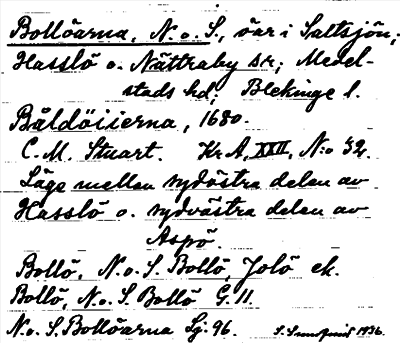 Bollöarna, N. o. S., öar i Saltsjön,
Hasslö o. Nättraby sr; Medel-
stads hd, Blekinge l.
Båldöisierna, 1680.
C. M. Stuart. Kr A, XXII, N:o 32.
Läge mellan sydöstra delen av
Hasslö o. sydvästra delen av
Aspö.
Bollö, N. o. S. Bollö, Jolö ek.
Bollö, N. o. S. Bollö G. 11.
N. o. S. Bollöarna Sj: 96. 1936.